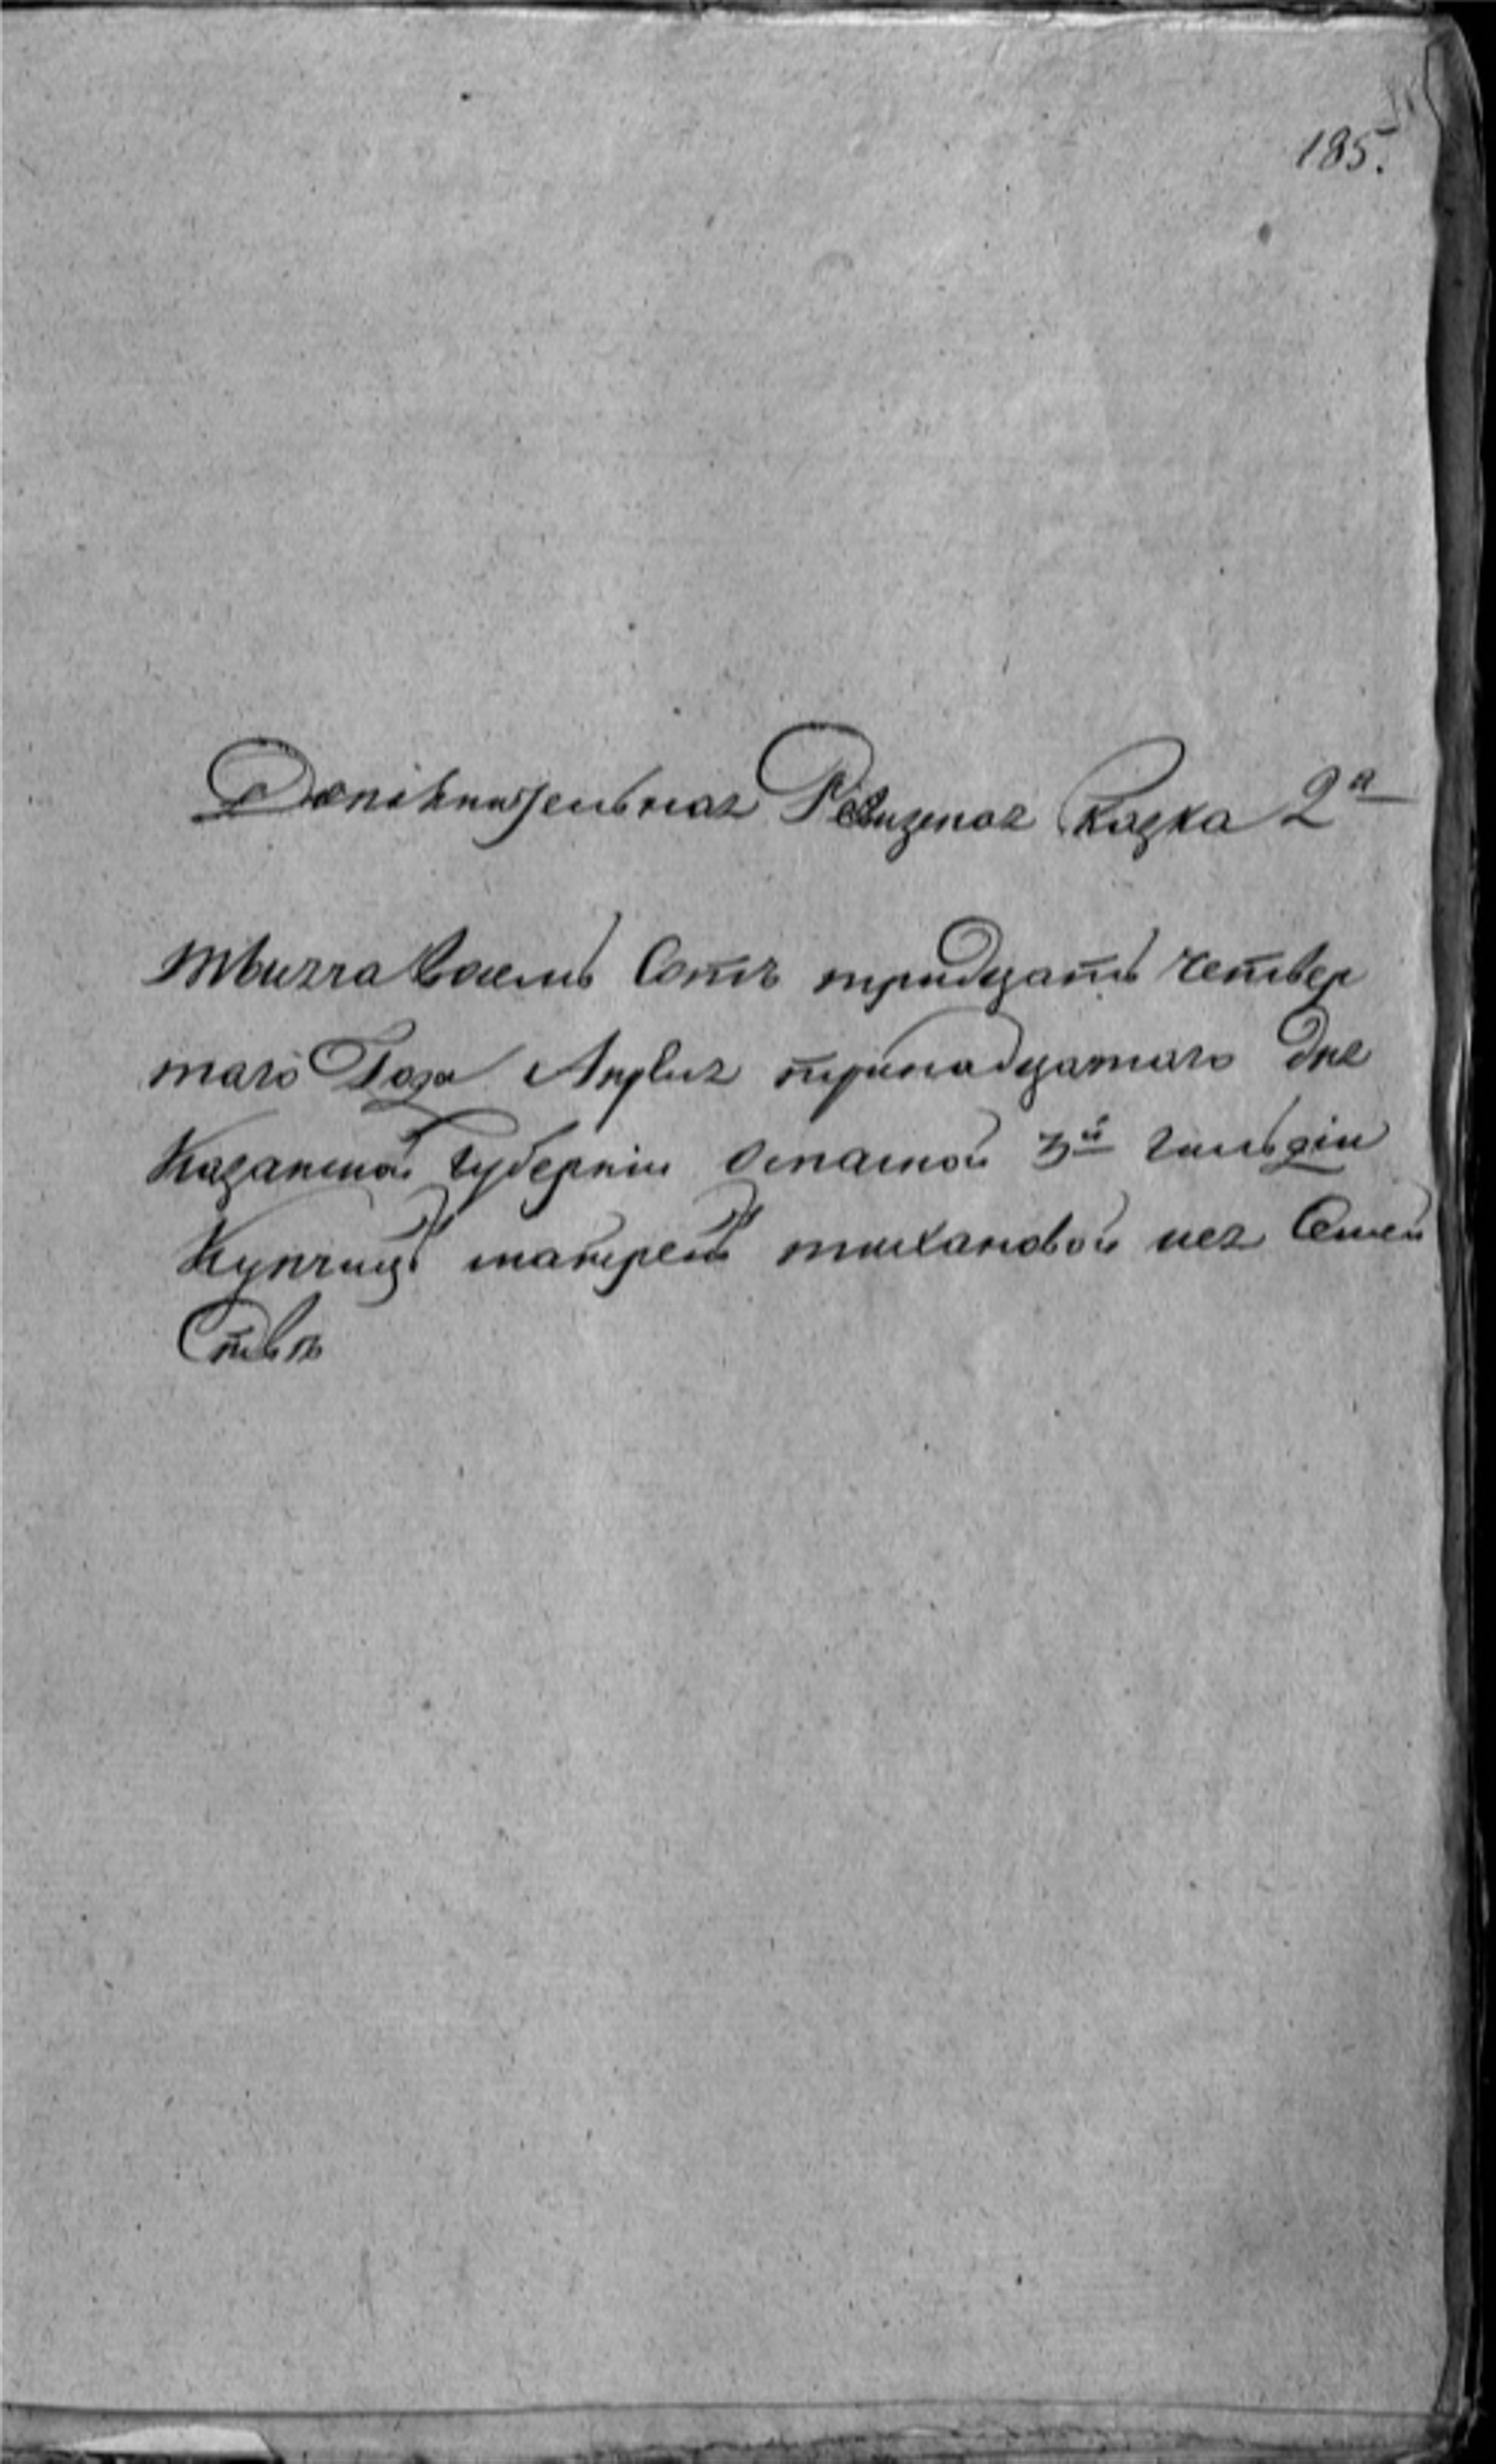 185.
Дополнительная Ревизская Сказка 2я
Тысяча восемь сотъ тридцать четвер
таго Года Апреля тринадцатаго дня
Казанской Губернии Спаской 3й гильдіи
Купчихи тихановой Семей
Ствѣ